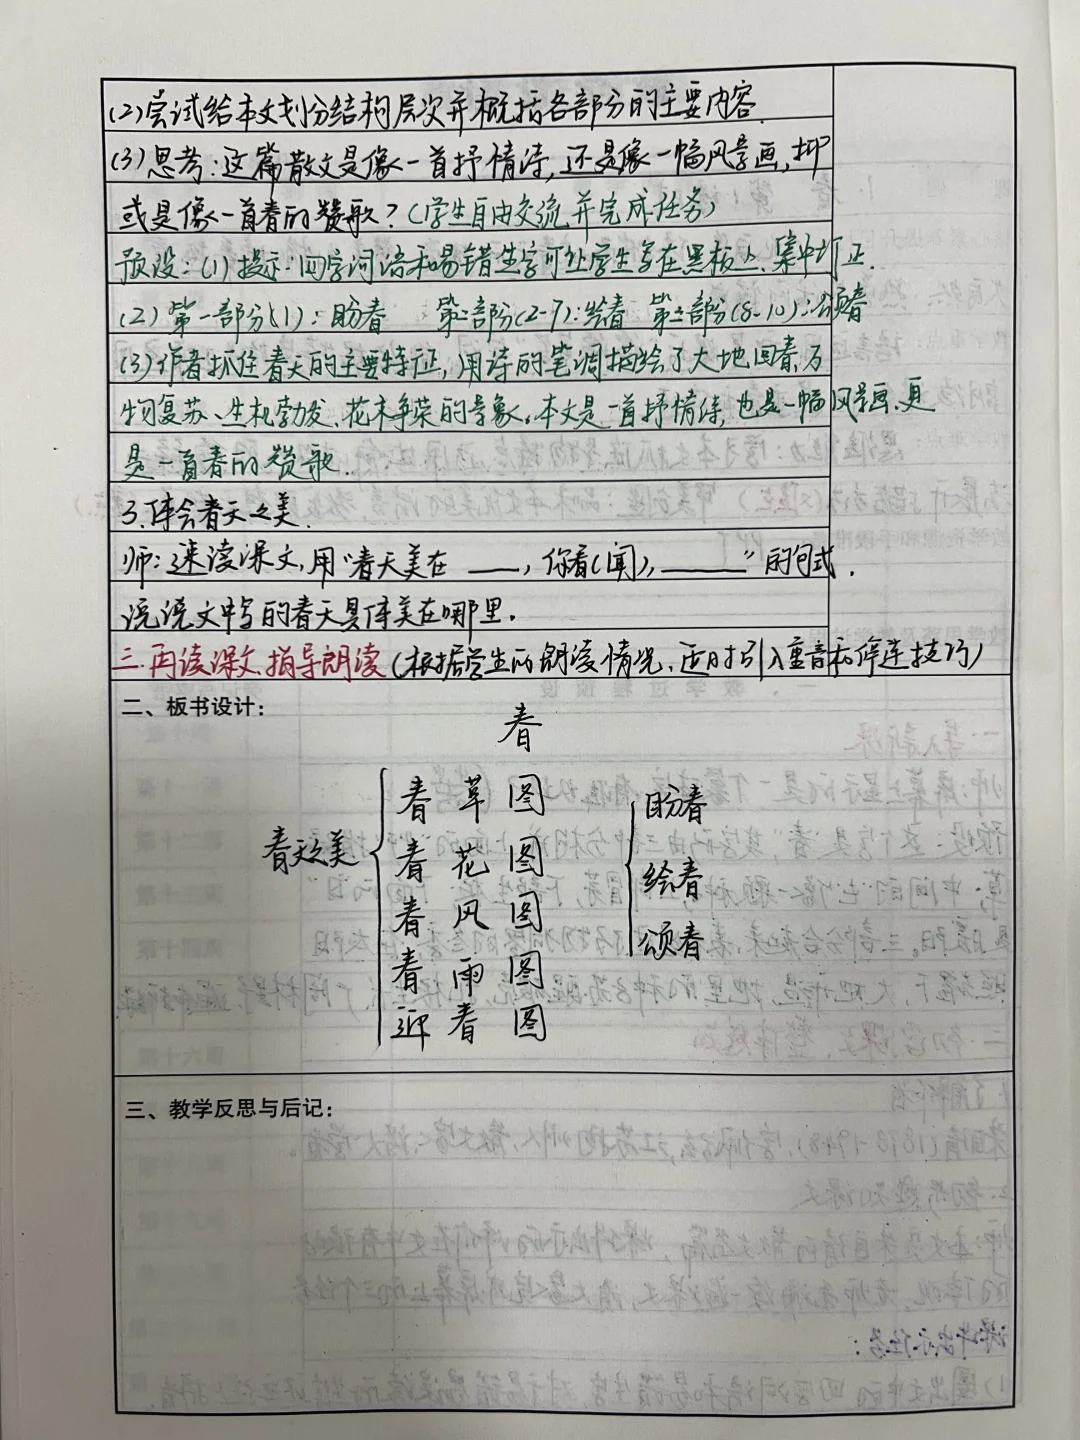 (2)尝试给本文划分结构层次并概括各部分的主要内容.
(3)思考:这篇散文是像一首抒情诗,还是像一幅风景画,抑
或是像一首春的赞歌?(学生自由交流,并完成任务)
预设:(1)提示:四字词语和易错生字可让学生写在黑板上,集中订正.
(2)第一部分(1):盼春 第二部分(2-7):绘春 第三部分(8-10):颂春
(3)作者抓住春天的主要特征,用诗的笔调描绘了大地回春,万
物复苏、生机勃发、花木争荣的景象。本文是一首抒情诗,也是一幅风景画,更
是一首春的赞歌.
3.体会春天之美.
师:速读课文,用"春天美在 ____,你看(闻),______"的句式.
说说文中写的春天具体美在哪里.
三.再读课文,指导朗读(根据学生的朗读情况,适时引入重音和停连技巧)
二、板书设计:
春
春天之美
春草图
春花图
春风图
春雨图
迎春图
盼春
绘春
颂春
三、教学反思与后记: